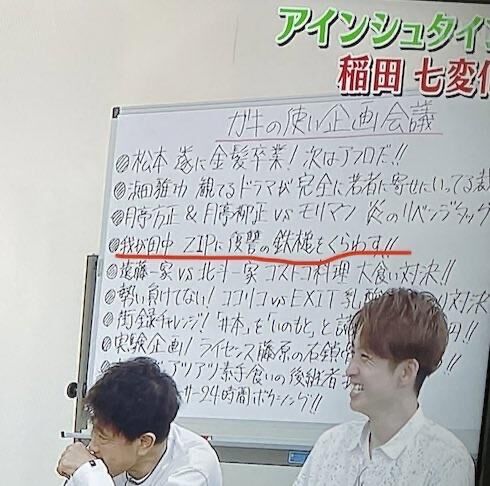 アインシュタイン
稲田 七変化
ガキの使い企画会議
松本 遂に金髪卒業!次はアフロだ!!
浜田雅功 観てるドラマが完全に若者に寄せにいってる
月亭方正&月亭柳正vsモリマン 炎のリベンジタッグ
我が田中 ZIPに復讐の鉄槌をくらわす!!
遠藤一家vs北斗一家 コストコ料理大食い対決!!
勢い負けてない!ココリコvsEXIT 乳 対決
街録チャレンジ!「井本」を「いのもと」と
実験企画!ライセンス藤原の右鎖骨
アツアツ素子食いの後継者
24時間ボウシング!!